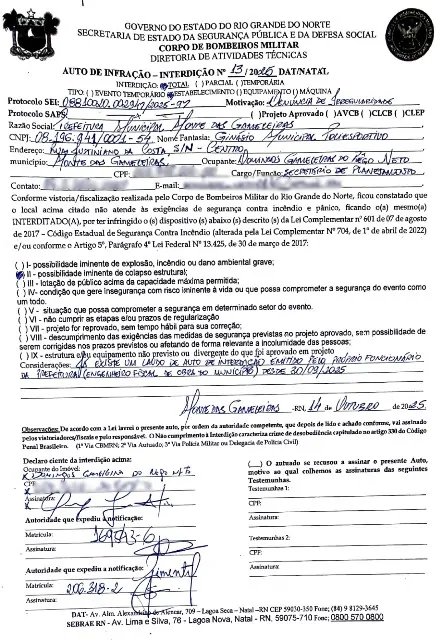 GOVERNO DO ESTADO DO RIO GRANDE DO NORTE
SECRETARIA DE ESTADO DA SEGURANÇA PÚBLICA E DA DEFESA SOCIAL
CORPO DE BOMBEIROS MILITAR
DIRETORIA DE ATIVIDADES TÉCNICAS
AUTO DE INFRAÇÃO – INTERDIÇÃO Nº 13/2025 DAT/NATAL
INTERDIÇÃO: TOTAL ( ) PARCIAL ( )TEMPORÁRIA
TIPO: ( ) EVENTO TEMPORÁRIO ESTABELECIMENTO ( ) EQUIPAMENTO ( ) MÁQUINA
Protocolo SEI: Motivação: DENÚNCIA DE IRREGULARIDADE
Protocolo SAPS: ( )Projeto Aprovado ( )AVCB ( )CLCB ( )CLEP
Razão Social: PREFEITURA MUNICIPAL MONTE DAS GAMELEIRAS
CNPJ: Nome Fantasia: GINÁSIO MUNICIPAL POLIESPORTIVO
Endereço: RUA DA COSTA, S/N - CENTRO
município: MONTE DAS GAMELEIRAS, Ocupante: DOMINGOS GAMELEIRA DO REGO NETO
CPF: Cargo/Função: SECRETÁRIO DE PLANEJAMENTO
Contato: E-mail:
Conforme vistoria/fiscalização realizada pelo Corpo de Bombeiros Militar do Rio Grande do Norte, ficou constatado que
o local acima citado não atende às exigências de segurança contra incêndio e pânico, ficando o(a) mesmo(a)
INTERDITADO(A), por ter infringido o (s) dispositivo (s) abaixo (s) descrito (s) da Lei Complementar nº 601 de 07 de agosto
de 2017 – Código Estadual de Segurança Contra Incêndio (alterada pela Lei Complementar Nº 704, de 1º de abril de 2022)
e/ou conforme o Artigo 5º, Parágrafo 4º Lei Federal N 13.425, de 30 de março de 2017:
( ) I- possibilidade iminente de explosão, incêndio ou dano ambiental grave;
II - possibilidade iminente de colapso estrutural;
( ) III - lotação de público acima da capacidade máxima permitida;
( ) IV- condição que gere insegurança com risco iminente à vida ou que possa comprometer a segurança do evento como
um todo.
( ) V - situação que possa comprometer a segurança em determinado setor do evento.
( ) VI - não cumprir as etapas e/ou prazos de regularização
( ) VII - projeto for reprovado, sem tempo hábil para sua correção;
( ) VIII - descumprimento das exigências das medidas de segurança previstas no projeto aprovado, sem possibilidade de
serem corrigidas nos prazos previstos ou afetando de forma relevante a incolumidade das pessoas;
( ) IX - estrutura e/ou equipamento não previsto ou divergente do que foi aprovado em projeto
Considerações: JÁ EXISTE UM LAUDO DE AUTO DE INTERDIÇÃO EMITIDO PELO PRÓPRIO FUNCIONÁRIO
DA PREFEITURA (ENGENHEIRO FISCAL DE OBRA DO MUNICÍPIO) DESDE 20/09/2025
MONTE DAS GAMELEIRAS -RN, 14 de OUTUBRO de 2025.
Observações: De acordo com a Lei lavrei o presente auto, por ordem da autoridade competente, que depois de lido e achado conforme, vai assinado
pelos vistoriadores/fiscais e pelo responsável. O Não cumprimento à Interdição caracteriza crime de desobediência capitulado no artigo 330 do Código
Penal Brasileiro. (1ª Via CBMRN; 2ª Via Autuado; 3ª Via Polícia Militar ou Delegacia de Polícia Civil)
Declaro ciente da interdição acima:
Ocupante do Imóvel:
DOMINGOS GAMELEIRA DO REGO NETO
CPF:
Assinatura:
Autoridade que expediu a notificação:
Matrícula:
Assinatura:
Autoridade que expediu a notificação:
Matrícula: 206.318-2
Assinatura: Pimentel
( ) O autuado se recusou a assinar o presente Auto,
motivo ao qual colhemos as assinaturas das seguintes
Testemunhas.
Testemunhas 1:
CPF:
Assinatura:
Testemunhas 2:
CPF:
Assinatura:
DAT- Av. Alm. Alexandrino de Alencar, 709 – Lagoa Seca – Natal –RN CEP 59030-350 Fone: (84) 9 8129-3645
SEBRAE RN - Av. Lima e Silva, 76 - Lagoa Nova, Natal - RN, 59075-710 Fone: 0800 570 0800